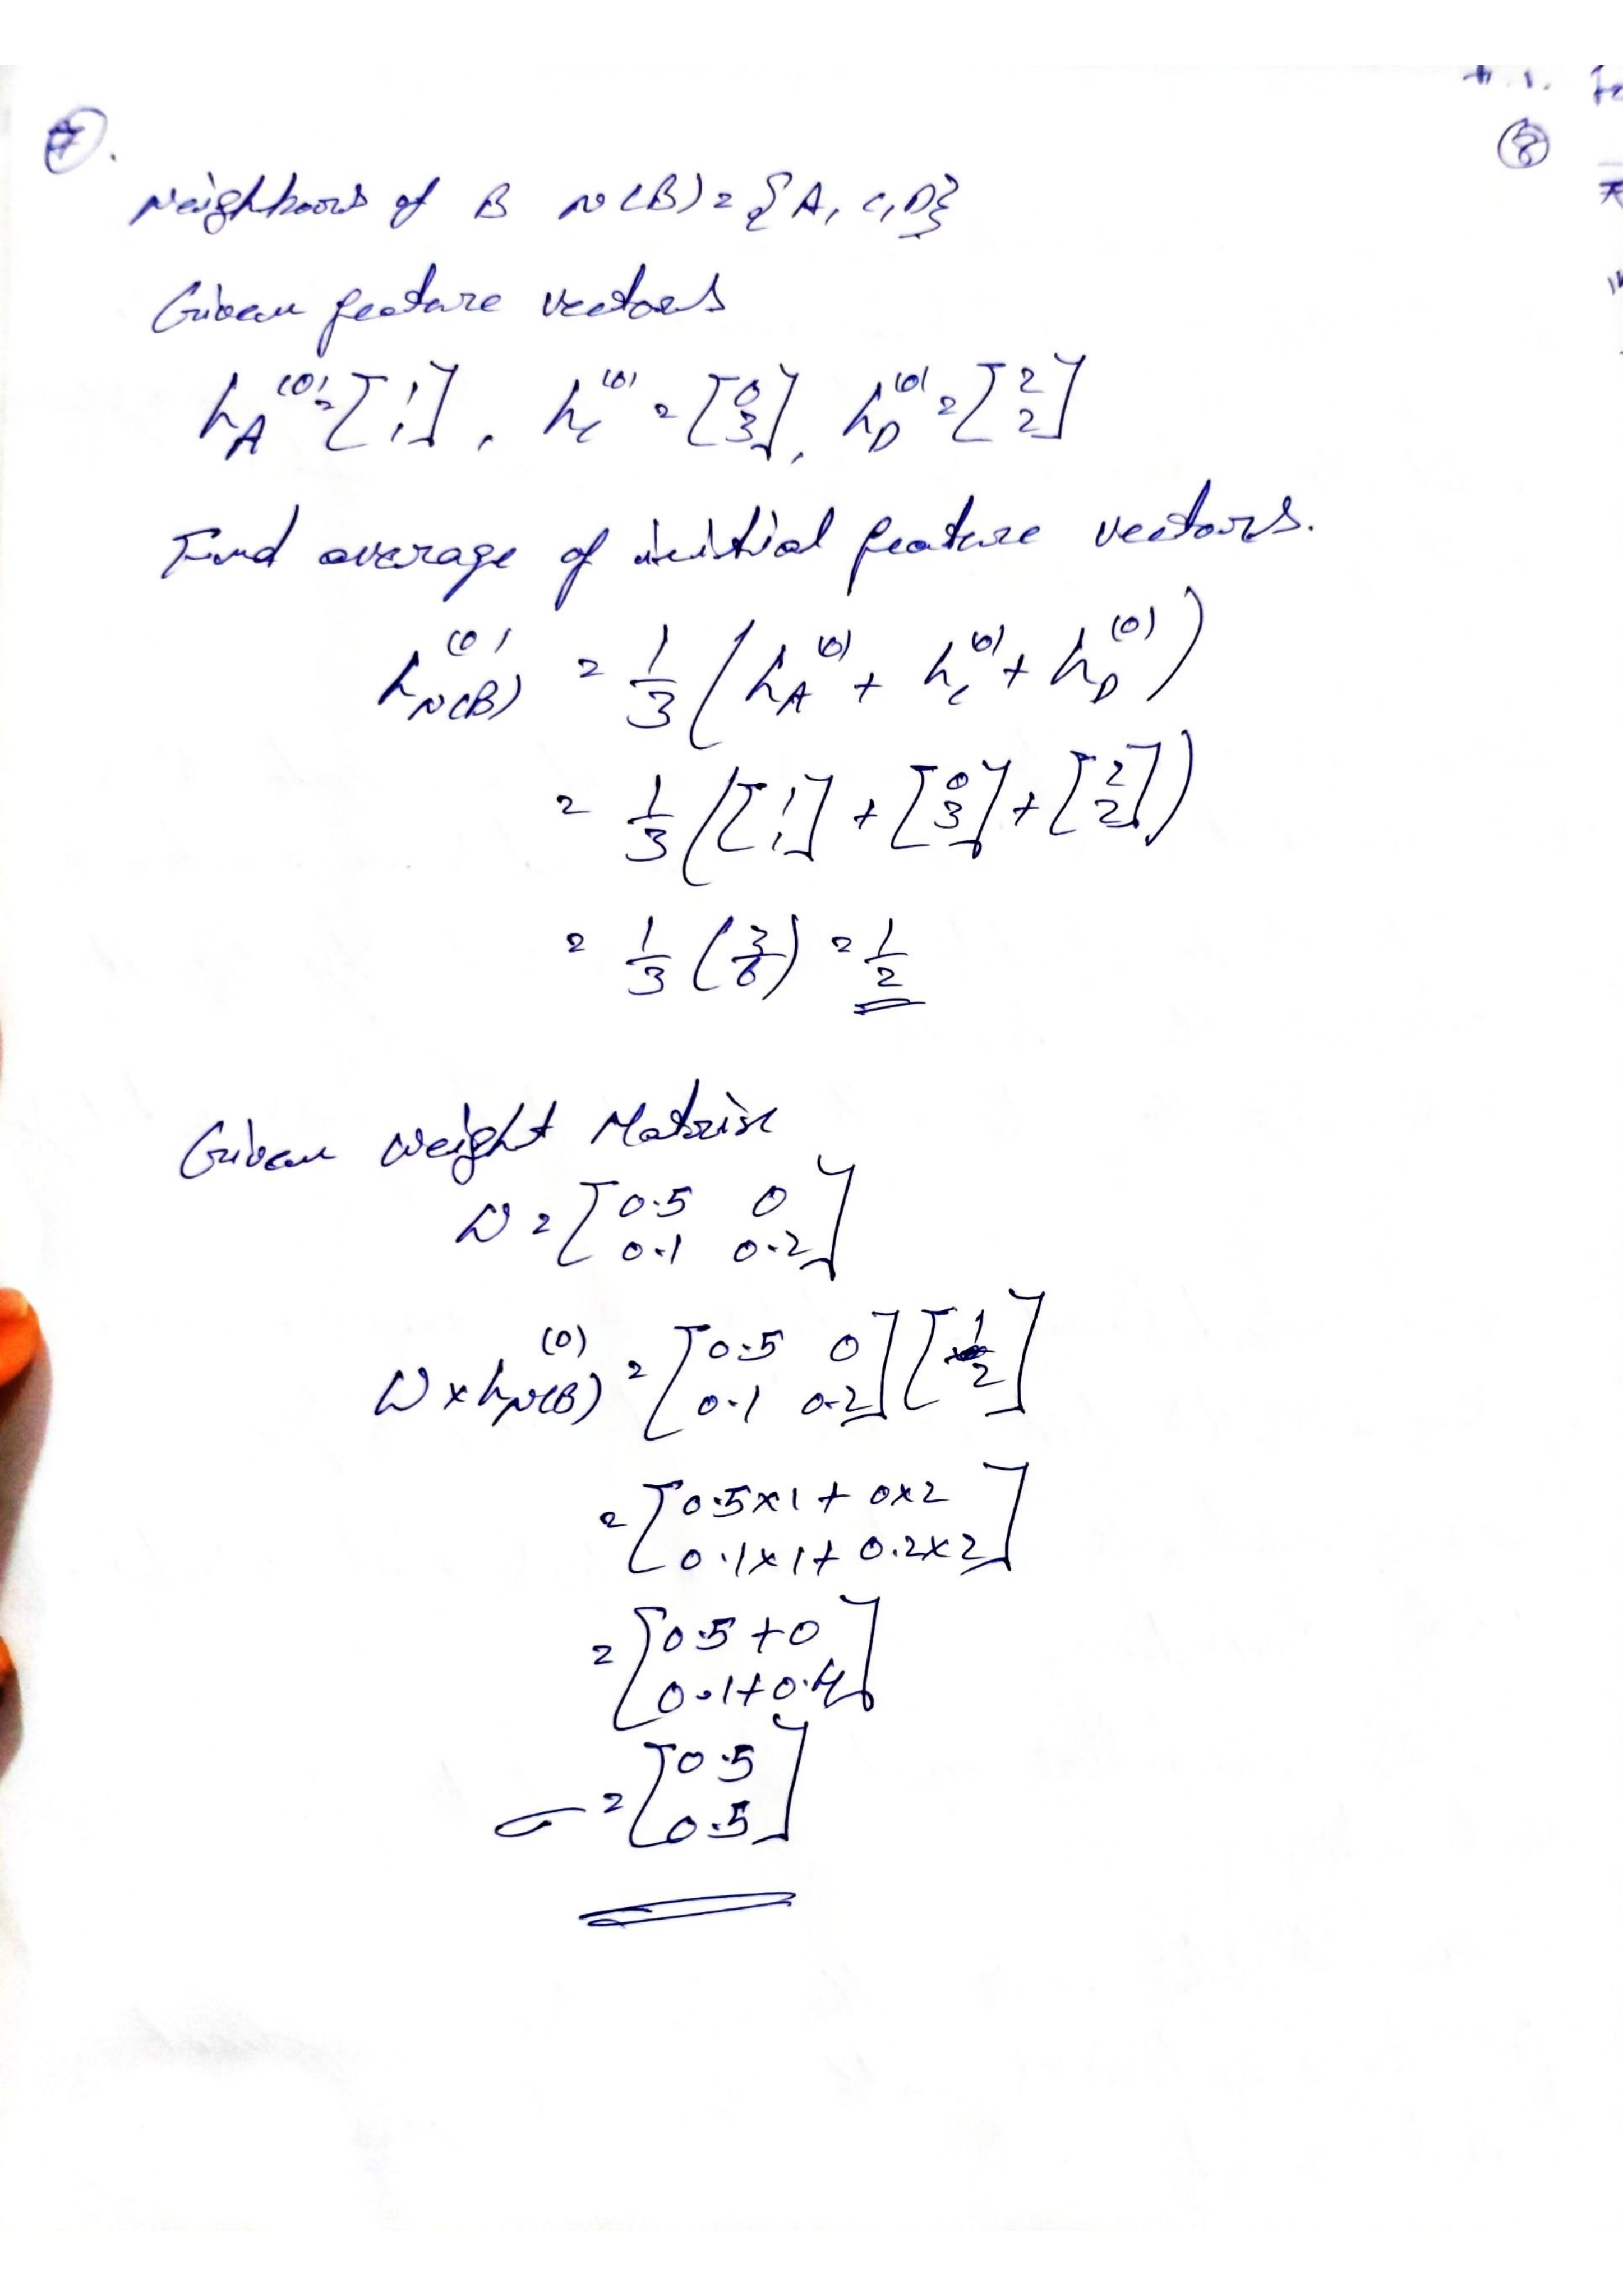 7.
8
Neighbours of B N(B) = {A, C, D}
Given feature vectors
h_A^(0) = [1; 1], h_C^(0) = [0; 3], h_D^(0) = [2; 2]
Find average of initial feature vectors.
h_N(B)^(0) = 1/3 (h_A^(0) + h_C^(0) + h_D^(0))
= 1/3 ([1; 1] + [0; 3] + [2; 2])
= 1/3 (3/6) = 1/2
Given Weight Matrix
W = [0.5 0; 0.1 0.2]
W × h_N(B)^(0) = [0.5 0; 0.1 0.2] [1; 2]
= [0.5×1 + 0×2; 0.1×1 + 0.2×2]
= [0.5 + 0; 0.1 + 0.4]
= [0.5; 0.5]